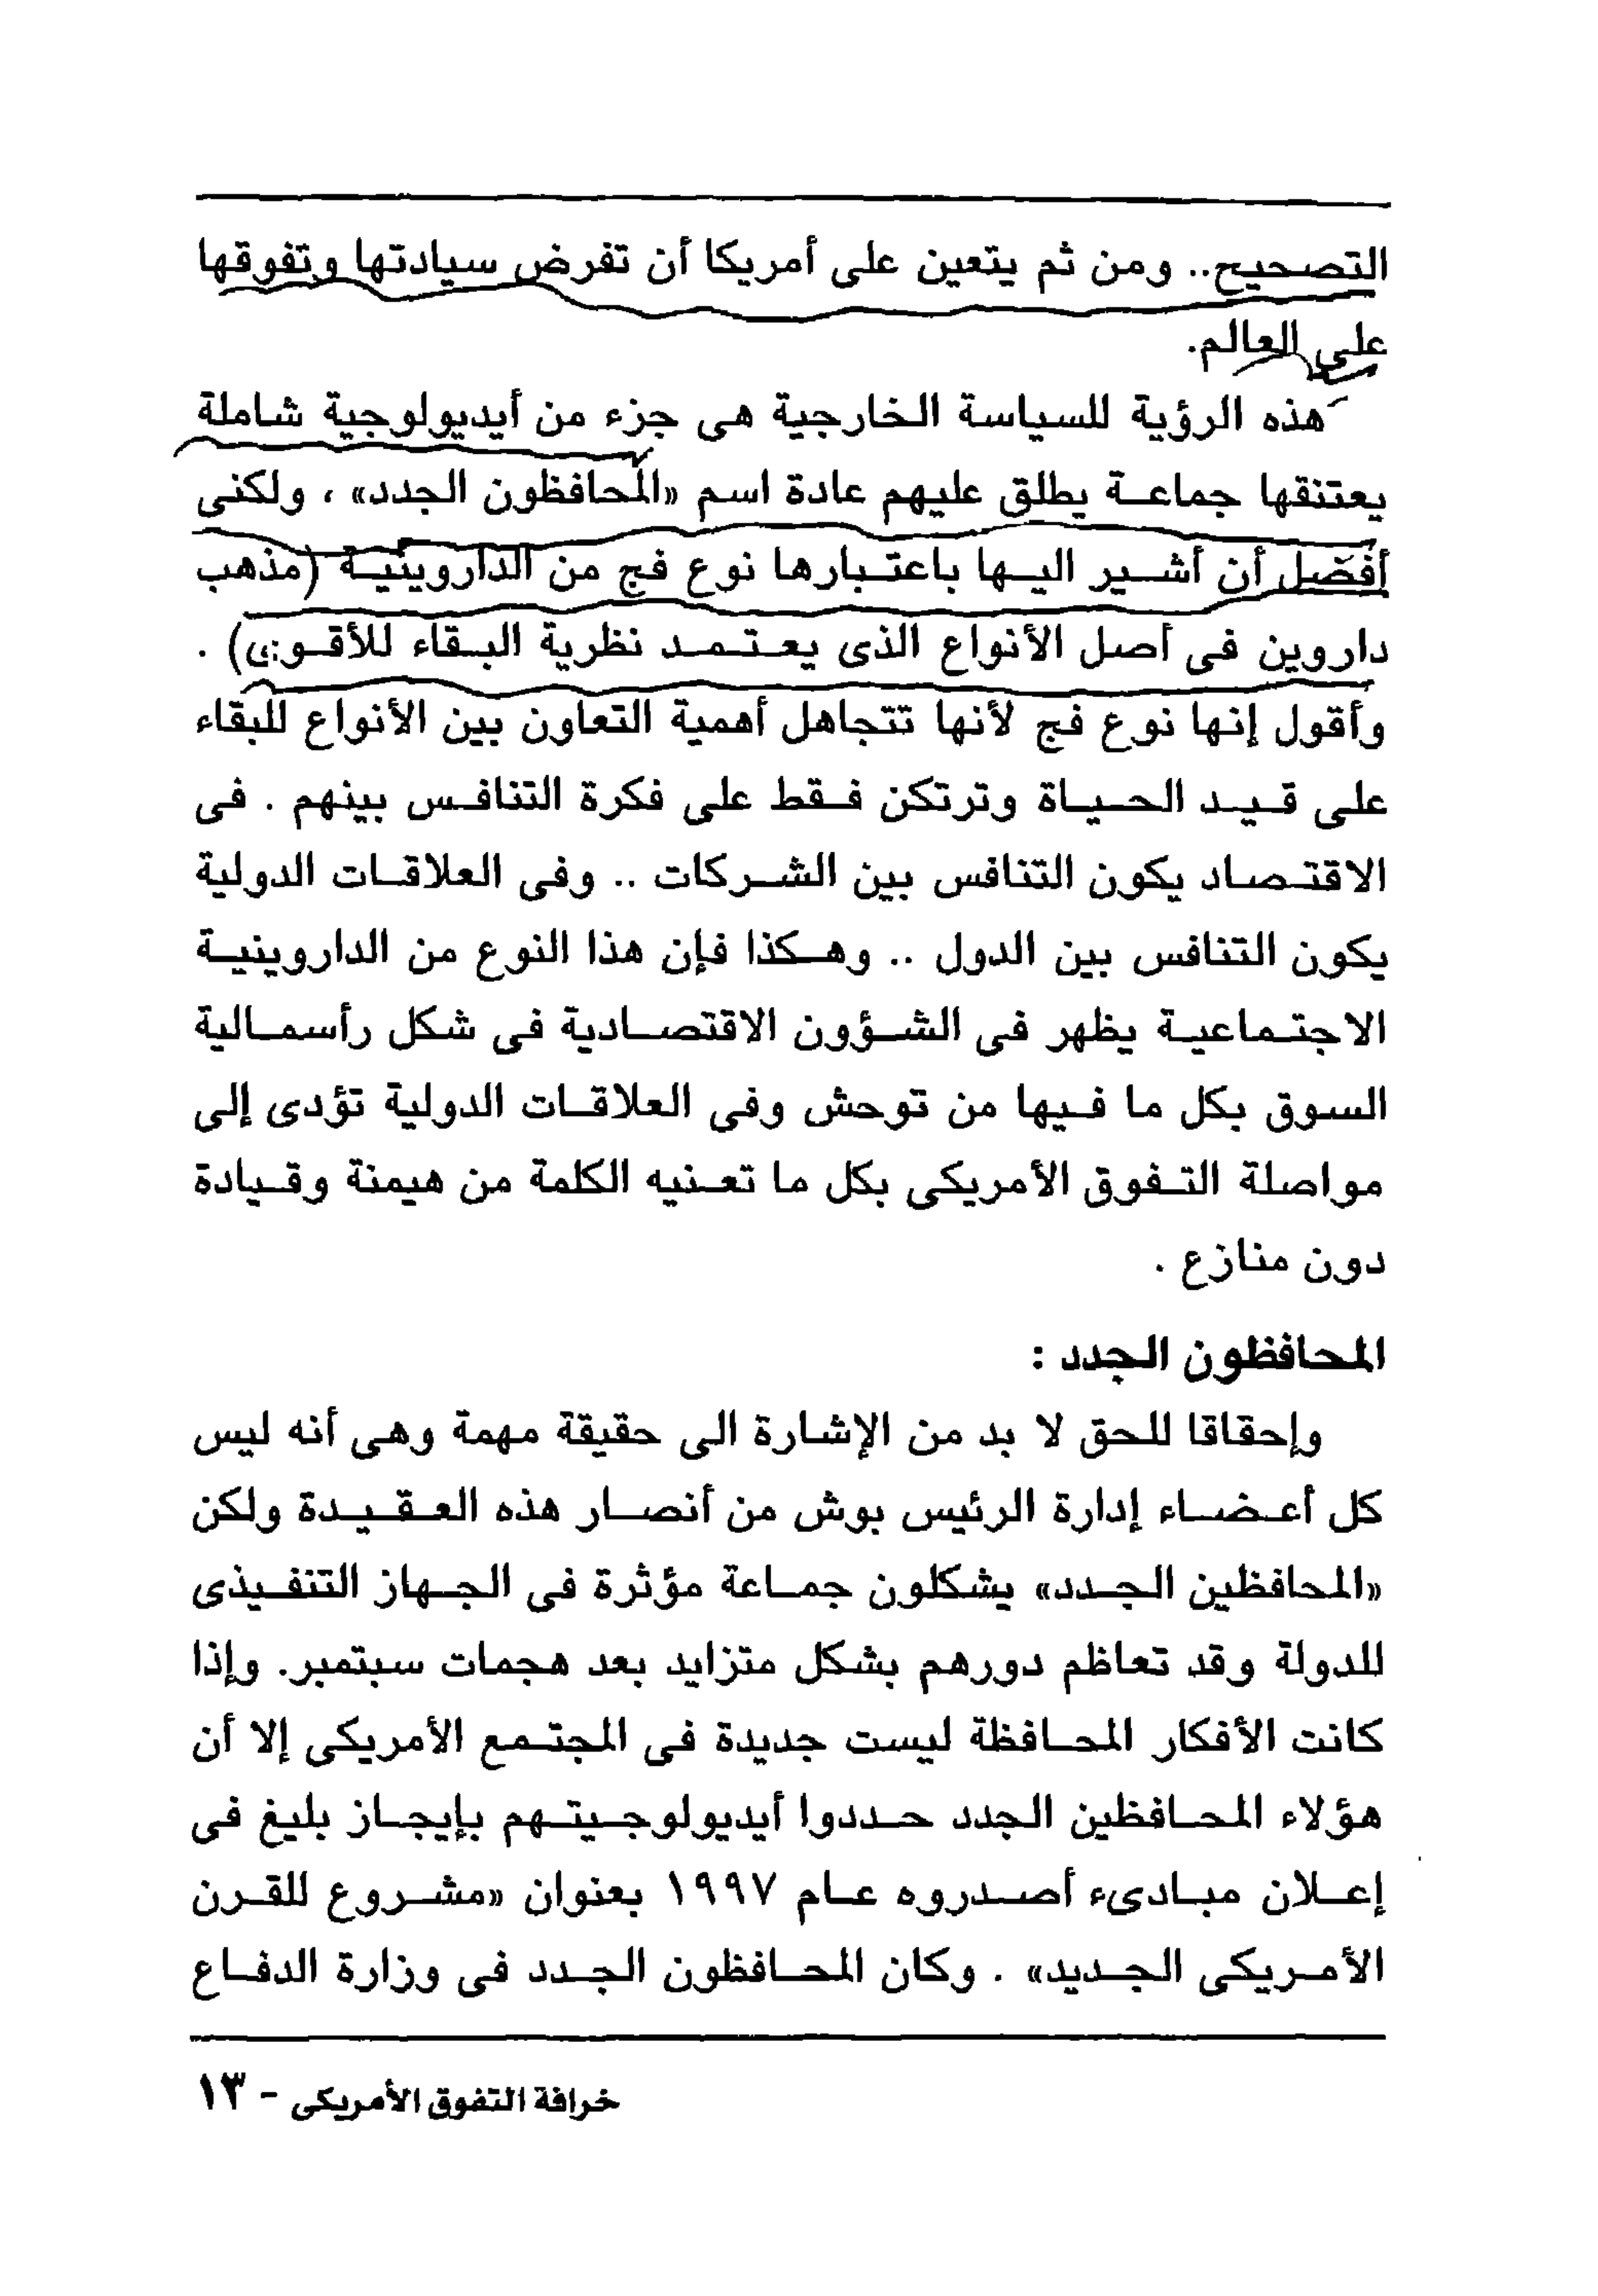 التصحيح.. ومن ثم يتعين على أمريكا أن تفرض سيادتها وتفوقها
على العالم.
هذه الرؤية للسياسة الخارجية هى جزء من أيديولوجية شاملة
يعتنقها جماعة يطلق عليهم عادة اسم «المحافظون الجدد» ، ولكنى
أفضل أن أشير اليها باعتبارها نوع فج من الداروينية (مذهب
داروين فى أصل الأنواع الذى يعتمد نظرية البقاء للأقوى) .
وأقول إنها نوع فج لأنها تتجاهل أهمية التعاون بين الأنواع للبقاء
على قيد الحياة وترتكن فقط على فكرة التنافس بينهم . فى
الاقتصاد يكون التنافس بين الشركات .. وفى العلاقات الدولية
يكون التنافس بين الدول .. وهكذا فإن هذا النوع من الداروينية
الاجتماعية يظهر فى الشؤون الاقتصادية فى شكل رأسمالية
السوق بكل ما فيها من توحش وفى العلاقات الدولية تؤدى إلى
مواصلة التفوق الأمريكى بكل ما تعنيه الكلمة من هيمنة وقيادة
دون منازع .
المحافظون الجدد :
وإحقاقا للحق لا بد من الإشارة الى حقيقة مهمة وهى أنه ليس
كل أعضاء إدارة الرئيس بوش من أنصار هذه العقيدة ولكن
«المحافظين الجدد» يشكلون جماعة مؤثرة فى الجهاز التنفيذى
للدولة وقد تعاظم دورهم بشكل متزايد بعد هجمات سبتمبر. وإذا
كانت الأفكار المحافظة ليست جديدة فى المجتمع الأمريكى إلا أن
هؤلاء المحافظين الجدد حددوا أيديولوجيتهم بإيجاز بليغ فى
إعلان مبادىء أصدروه عام ١٩٩٧ بعنوان «مشروع للقرن
الأمريكى الجديد» . وكان المحافظون الجدد فى وزارة الدفاع
خرافة التفوق الأمريكى - ١٣